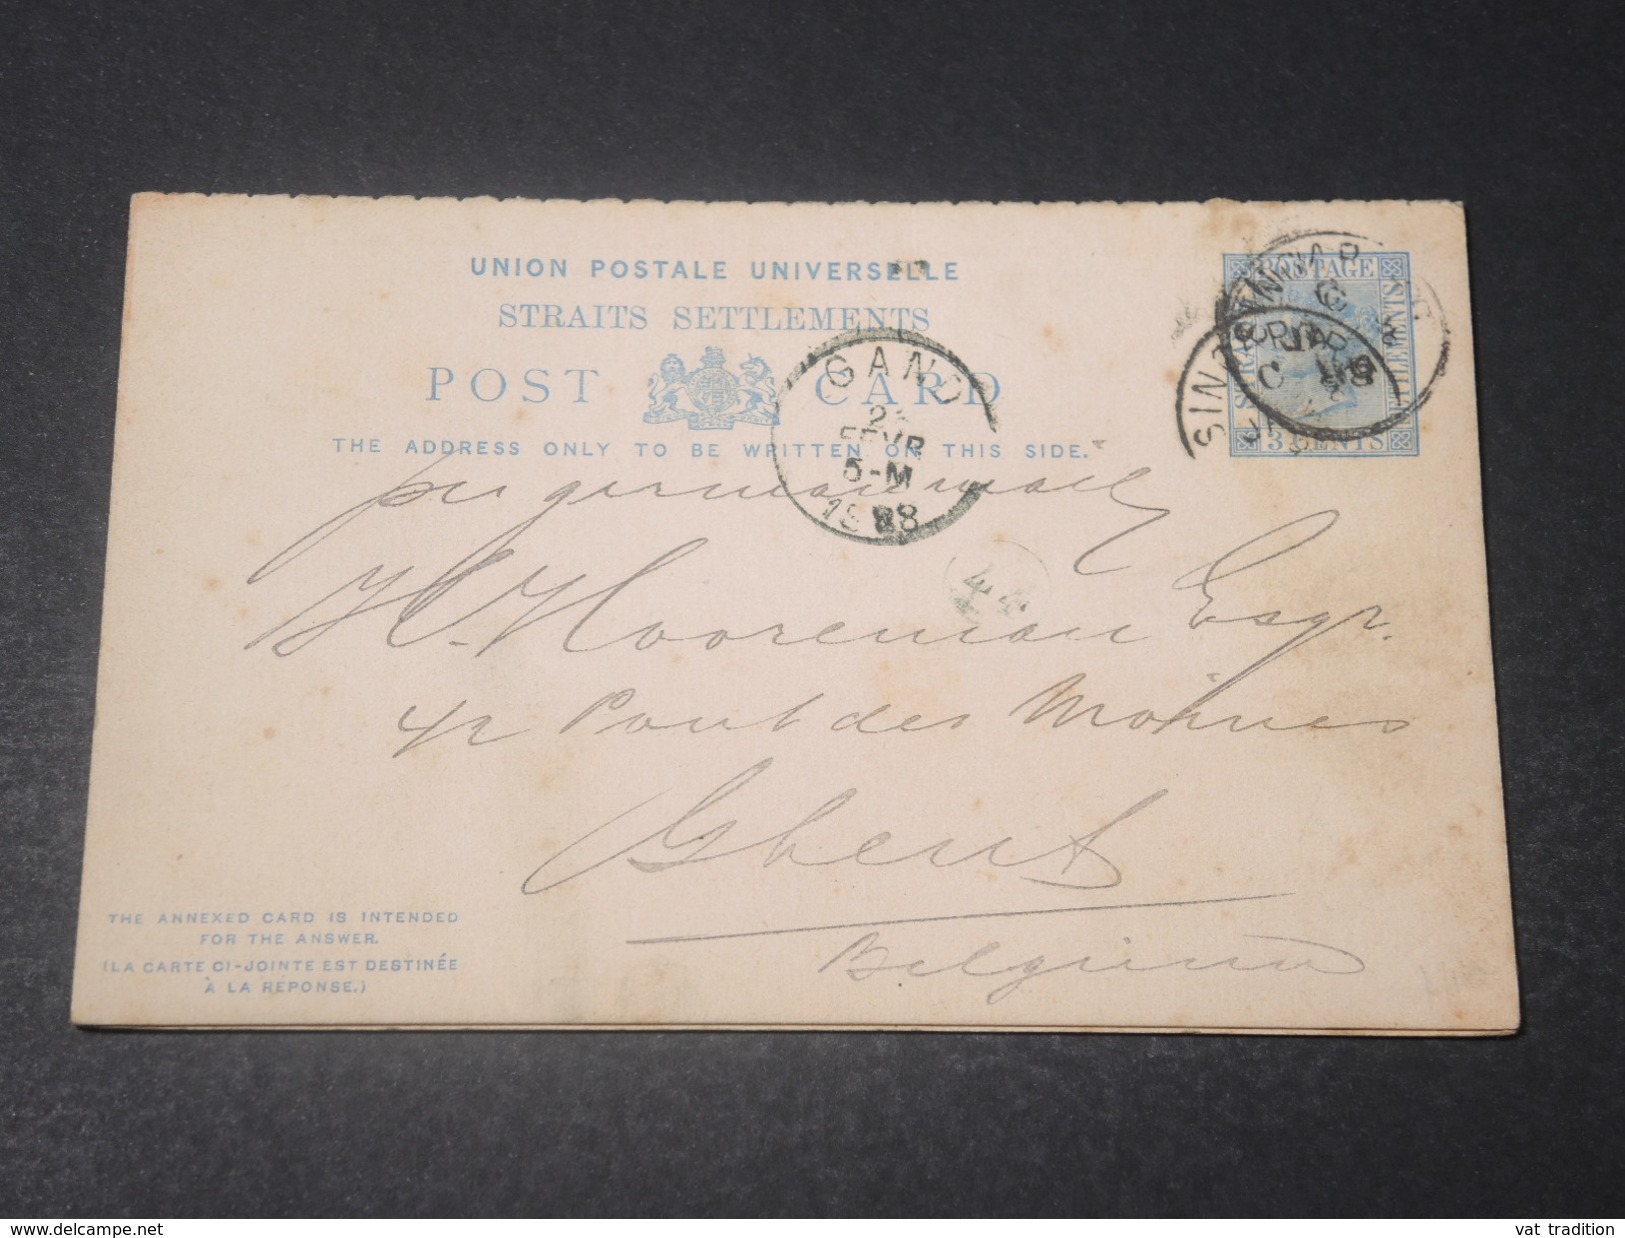 UNION POSTALE UNIVERSELLE
STRAITS SETTLEMENTS
POST CARD
THE ADDRESS ONLY TO BE WRITTEN ON THIS SIDE.
POSTAGE
3 CENTS
GAND
FEVR
5-M
1888
per german mail
44
Hooreman Esqr.
42 Pont des Moines
Ghent
Belgium
THE ANNEXED CARD IS INTENDED
FOR THE ANSWER.
(LA CARTE CI-JOINTE EST DESTINÉE
À LA RÉPONSE.)
delcampe.net
vat tradition